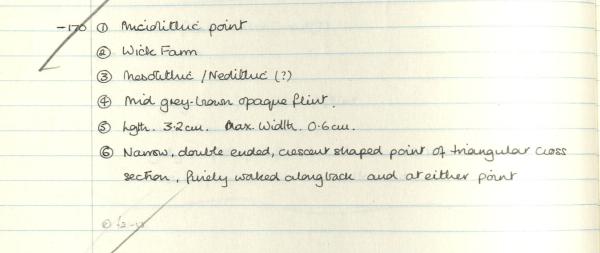 -170 ① Microlithic point
② Wick Farm
③ Mesolithic / Neolithic (?)
④ Mid grey-brown opaque flint.
⑤ lgth. 3.2cm. Max. Width. 0.6cm.
⑥ Narrow, double ended, crescent shaped point of triangular cross
section, finely worked along back and at either point